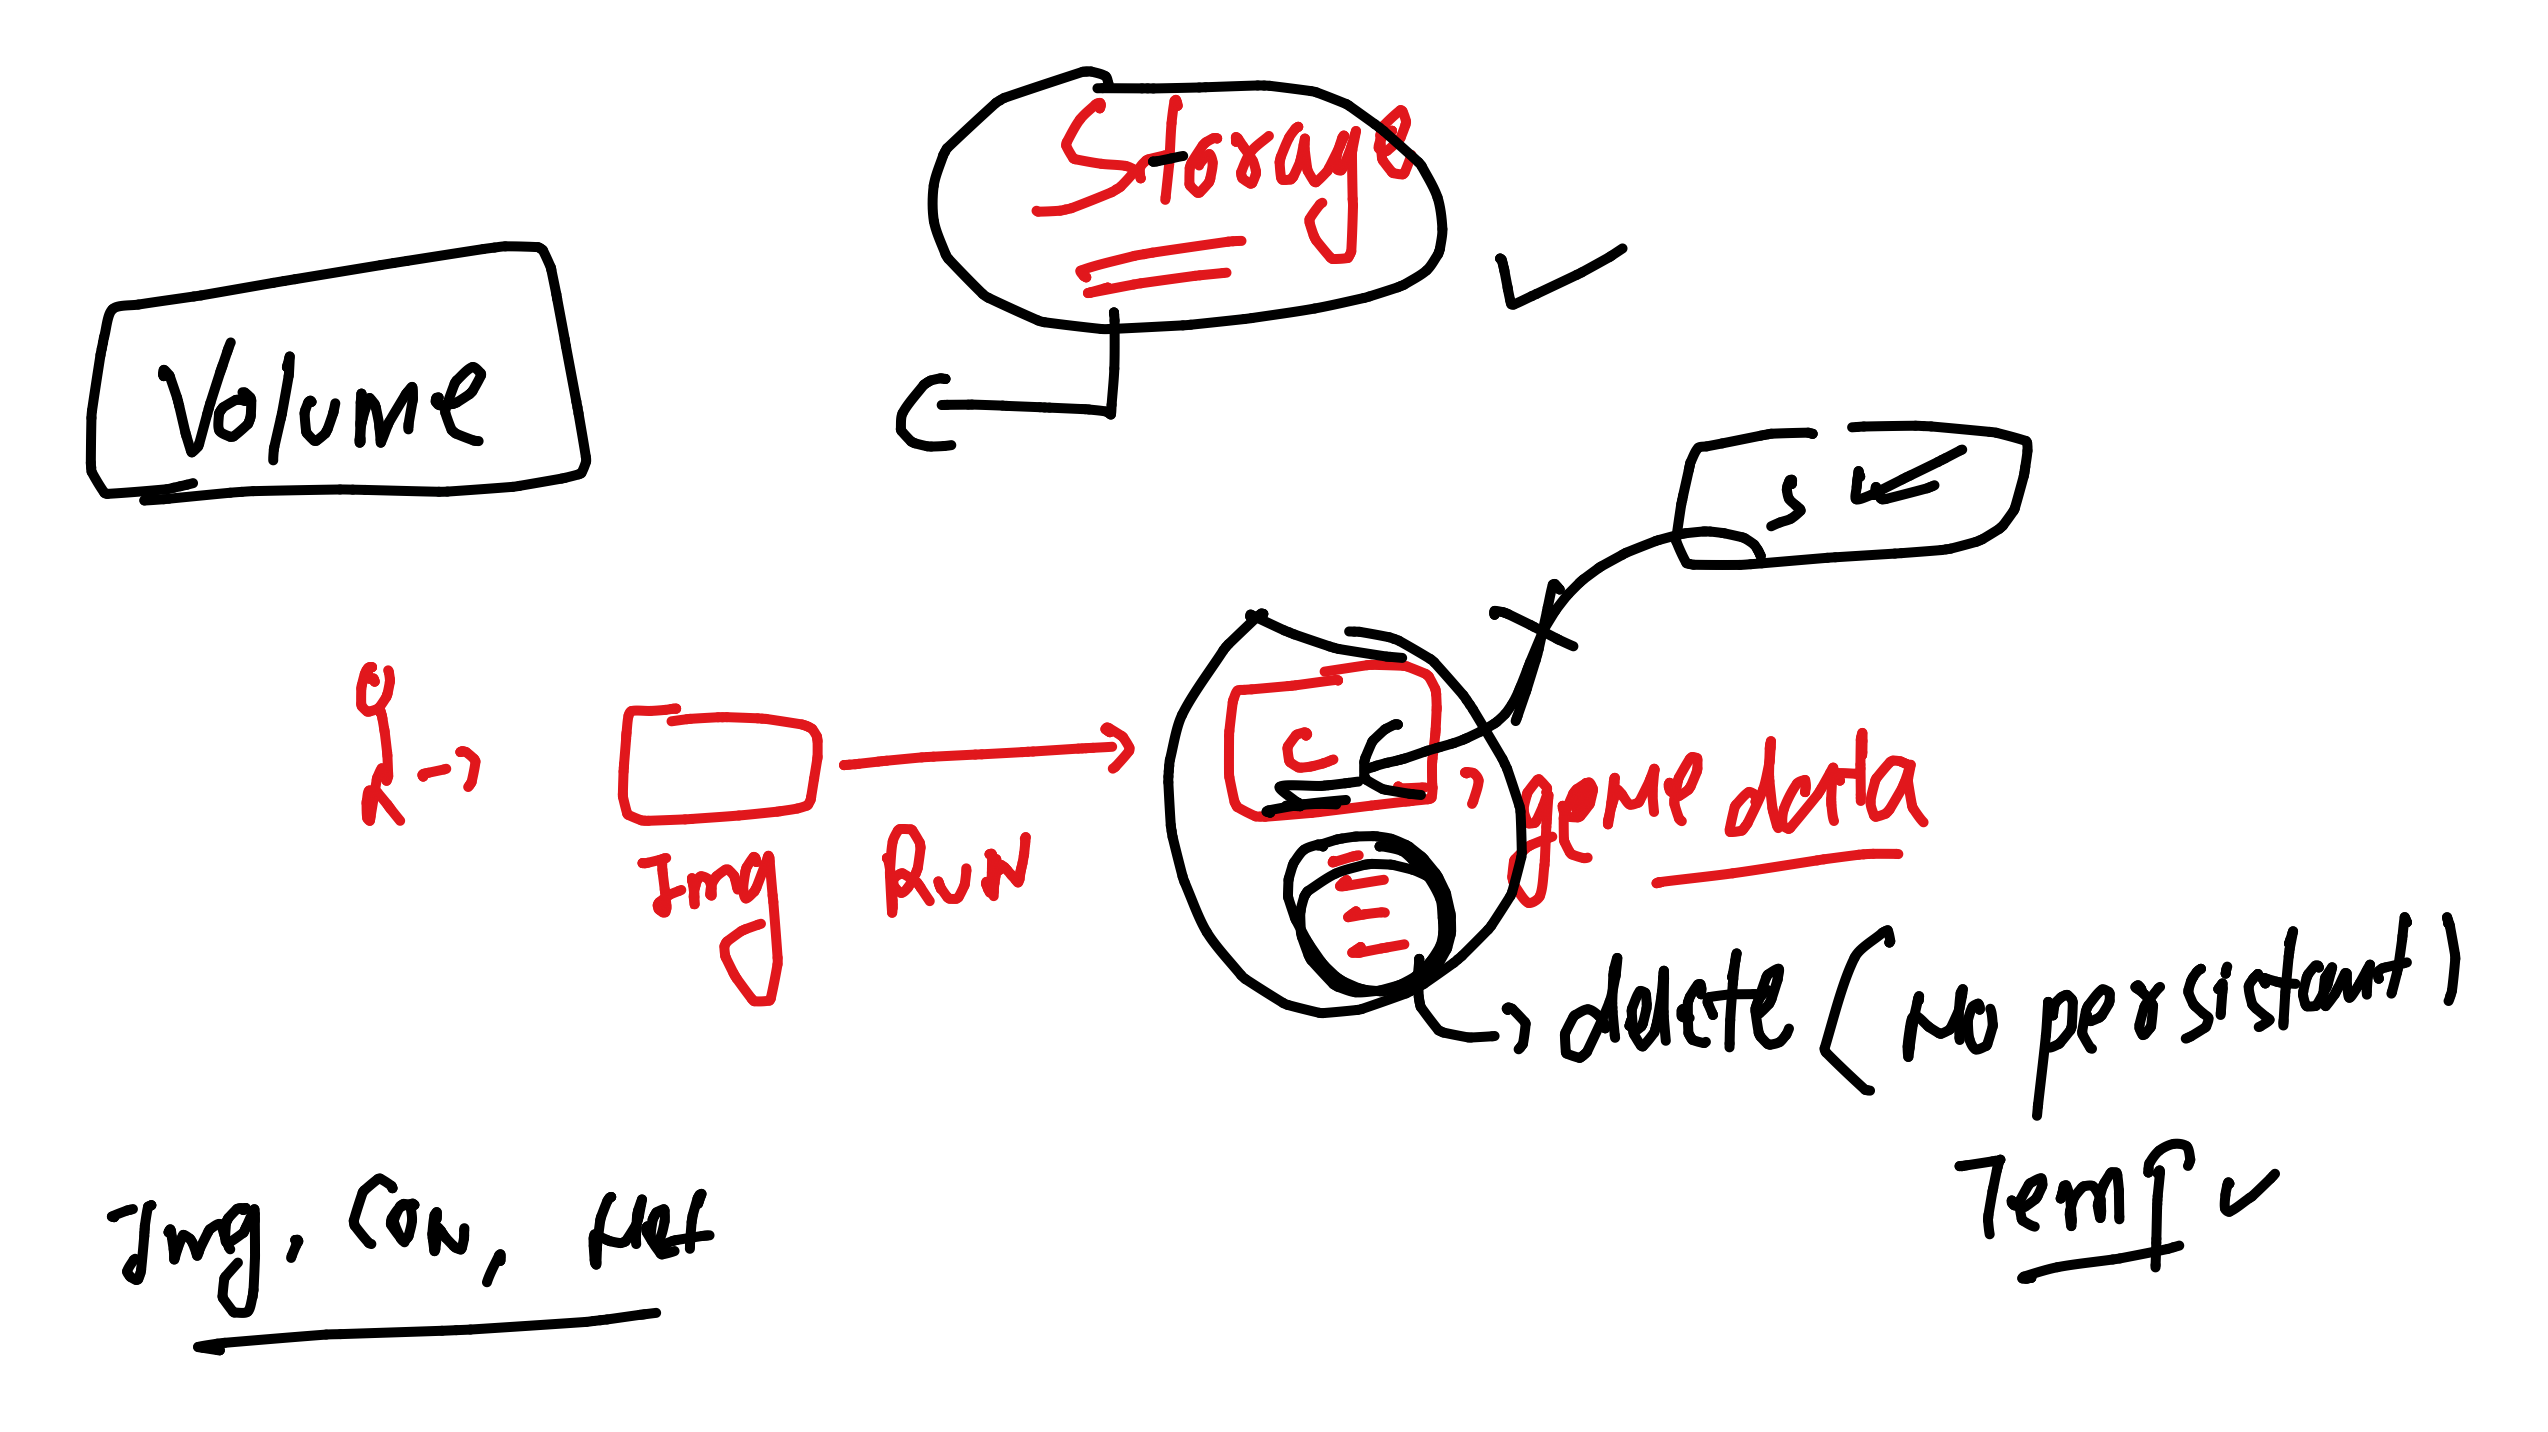 Storage
Volume
S
C
gene data
Img
Run
delete (No persistant)
Temp
Img, Con, Net